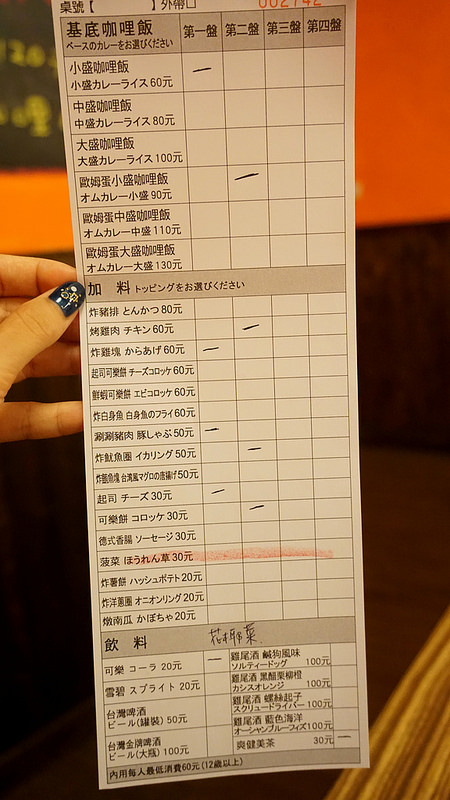 桌號【 】外帶口 002742
基底咖哩飯 第一盤 第二盤 第三盤 第四盤
ベースのカレーをお選びください
小盛咖哩飯
小盛カレーライス 60元
中盛咖哩飯
中盛カレーライス 80元
大盛咖哩飯
大盛カレーライス 100元
歐姆蛋小盛咖哩飯
オムカレー小盛 90元
歐姆蛋中盛咖哩飯
オムカレー中盛 110元
歐姆蛋大盛咖哩飯
オムカレー大盛 130元
加 料 トッピングをお選びください
炸豬排 とんかつ 80元
烤雞肉 チキン 60元
炸雞塊 からあげ 60元
起司可樂餅 チーズコロッケ 60元
鮮蝦可樂餅 エビコロッケ 60元
炸白身魚 白身魚のフライ 60元
涮涮豬肉 豚しゃぶ 50元
炸魷魚圈 イカリング 50元
炸鮪魚塊 台湾風マグロの唐揚げ 50元
起司 チーズ 30元
可樂餅 コロッケ 30元
德式香腸 ソーセージ 30元
菠菜 ほうれん草 30元
炸薯餅 ハッシュポテト 20元
炸洋蔥圈 オニオンリング 20元
燉南瓜 かぼちゃ 20元
飲 料 花椰菜
可樂 コーラ 20元
雪碧 スプライト 20元
台灣啤酒
ビール(罐裝) 50元
台灣金牌啤酒
ビール(大瓶) 100元
雞尾酒 鹹狗風味
ソルティードッグ 100元
雞尾酒 黑醋栗柳橙
カシスオレンジ 100元
雞尾酒 螺絲起子
スクリュードライバー 100元
雞尾酒 藍色海洋
オーシャンブルーフィズ 100元
爽健美茶 30元
內用每人最低消費60元 (12歲以上)